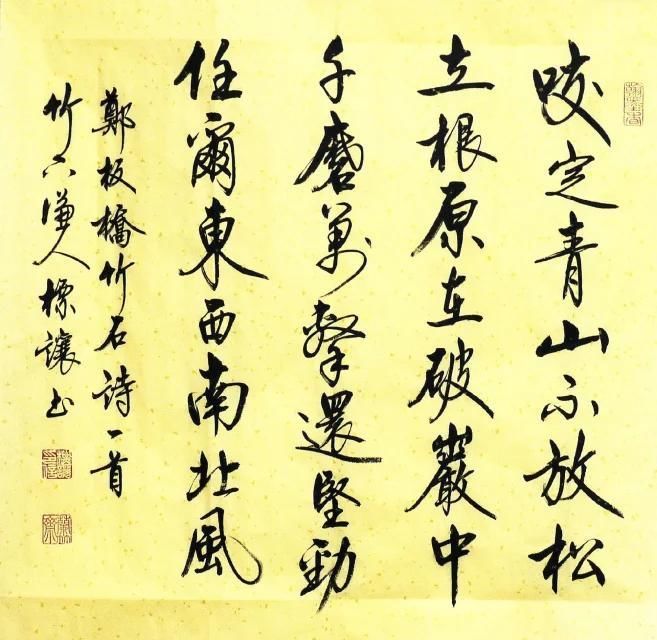 咬定青山不放松
立根原在破巖中
千磨萬擊還堅勁
任爾東西南北風
鄭板橋竹石詩一首
竹下謙人標讓書